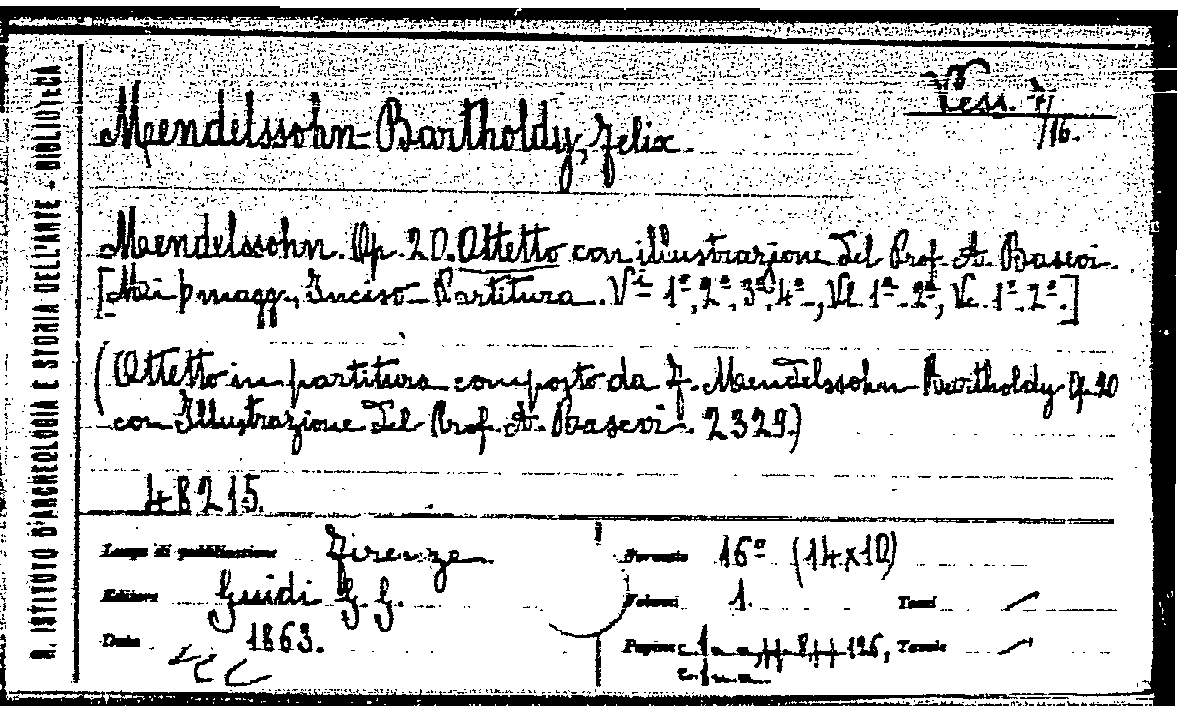 R. ISTITUTO D'ARCHEOLOGIA E STORIA DELL'ARTE - BIBLIOTECA
Vess.
/16.
Mendelssohn-Bartholdy, Felix.
Mendelssohn. Op. 20. Ottetto con illustrazione del Prof. A. Basevi.
[Mi b magg., Inciso. Partitura. Vi 1º, 2º, 3º, 4º, Vl. 1ª. 2ª, Vc. 1º. 2º.]
(Ottetto in partitura composto da F. Mendelssohn-Bartholdy Op. 20
con Illustrazione del Prof. A. Basevi. 2329.)
48215.
Luogo di pubblicazione Firenze
Editore Guidi G. G.
Data 1863.
Formato 16º (14x10)
Volumi 1. Tomi
Pagine 8, 126, Tavole